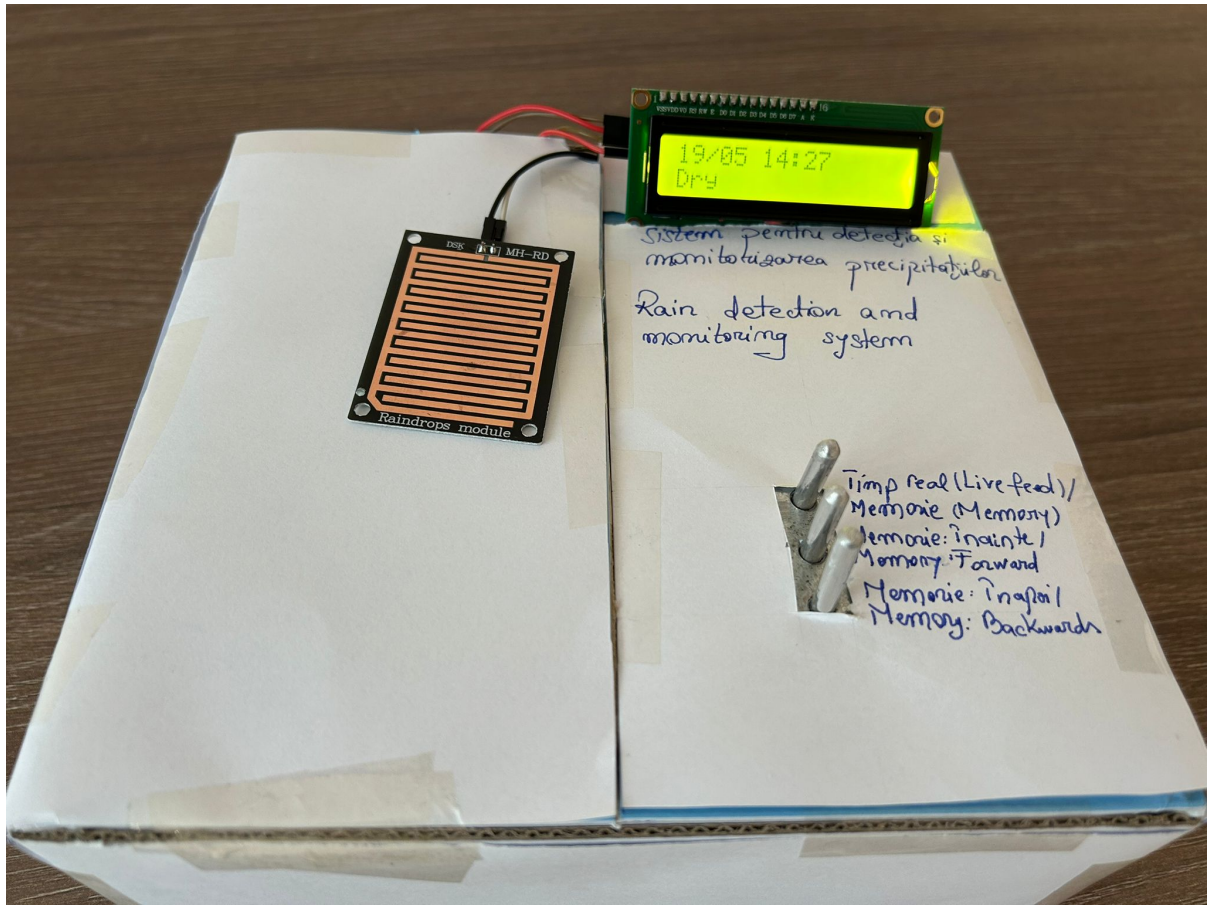 1
16
VSS VDD V0 RS RW E D0 D1 D2 D3 D4 D5 D6 D7 A K
19/05 14:27
Dry
DSK MH-RD
Raindrops module
Sistem pentru detecția și
monitorizarea precipitațiilor
Rain detection and
monitoring system
Timp real (Live feed)/
Memorie (Memory)
Memorie: Înainte/
Memory: Forward
Memorie: Înapoi/
Memory: Backwards